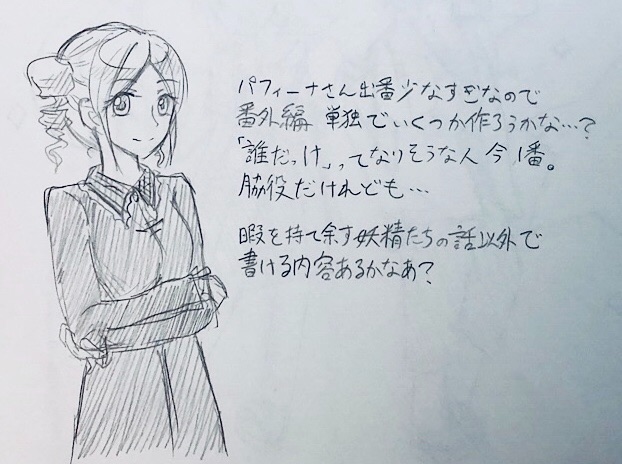 パフィーナさん出番少なすぎなので
番外編 単独でいくつか作ろうかな…?
「誰だっけ」ってなりそうな人 今1番。
脇役だけれども…
暇を持て余す妖精たちの話以外で
書ける内容あるかなあ?